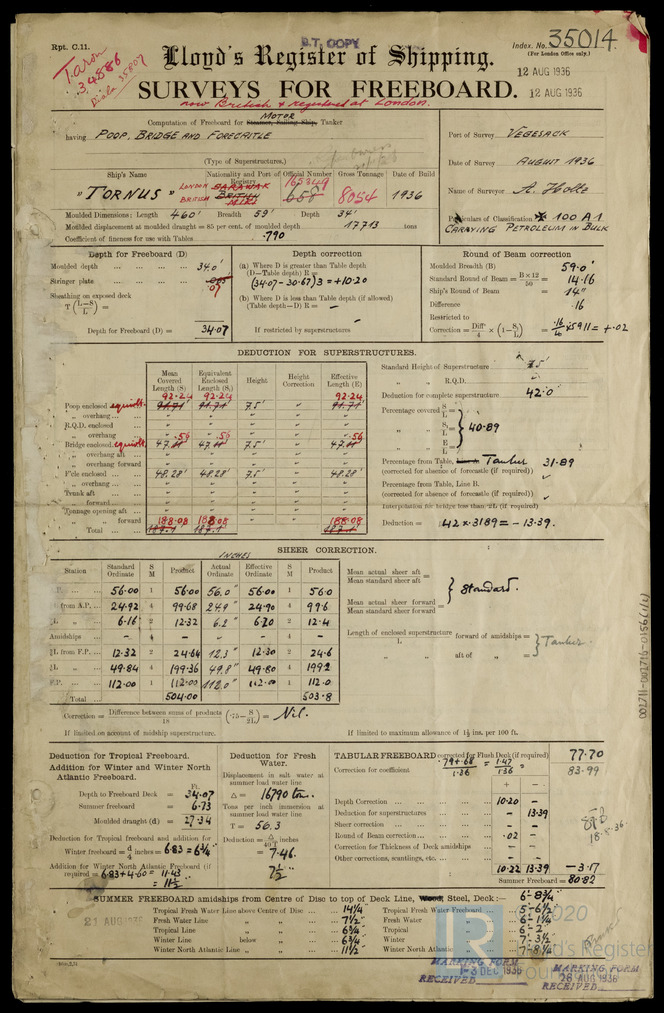 Rpt. C.11.
B.T. COPY
Index. No. 35014.
(For London Office only.)
Taron
34886
Diala 35807
Lloyd's Register of Shipping.
12 AUG 1936
SURVEYS FOR FREEBOARD.
12 AUG 1936
now British & registered at London.
MOTOR
Computation of Freeboard for Steamer, Sailing Ship, Tanker
having POOP, BRIDGE AND FORECASTLE
(Type of Superstructures.)
Port of Survey VEGESACK
Date of Survey AUGUST 1936
Name of Surveyor A. Holtz
Particulars of Classification ✠ 100 A.1
CARRYING PETROLEUM IN BULK
Ship's Name Nationality and Port of Registry Official Number Gross Tonnage Date of Build
"TORNUS" LONDON SARAWAK BRITISH BRITISH MIRI 165349 658 8054 1936
Moulded Dimensions: Length 460' Breadth 59' Depth 34'
Moulded displacement at moulded draught = 85 per cent. of moulded depth 17713 tons
Coefficient of fineness for use with Tables .790
Depth for Freeboard (D)
Moulded depth 34.0'
Stringer plate .07
Sheathing on exposed deck
T (L–S/L) =
Depth for Freeboard (D) = 34.07
Depth correction
(a) Where D is greater than Table depth
(D—Table depth) R =
(34.07 - 30.67) 3 = +10.20
(b) Where D is less than Table depth (if allowed)
(Table depth—D) R = —
If restricted by superstructures
Round of Beam correction
Moulded Breadth (B) 59.0'
Standard Round of Beam = B×12/50 = 14.16
Ship's Round of Beam = 14"
Difference .16
Restricted to
Correction = Diff/4 × (1–S₁/L) = .16/4 × .5911 = +.02
DEDUCTION FOR SUPERSTRUCTURES.
Mean Covered Length (S) Equivalent Enclosed Length (S₁) Height Height Correction Effective Length (E)
Poop enclosed equivlt. 92.24 91.71' 92.24 91.71' 7.5' " 92.24 91.71'
„ overhang
R.Q.D. enclosed
„ overhang
Bridge enclosed equivlt. 47.56 47.56 7.5' " 47.56
„ overhang aft
„ overhang forward
F'cle enclosed 48.28' 48.28' 7.5' " 48.28'
„ overhang
Trunk aft
„ forward
Tonnage opening aft
„ „ forward
Total 188.08 188.08 188.08
Standard Height of Superstructure 7.5'
„ „ R.Q.D.
Deduction for complete superstructure 42.0"
Percentage covered S/L =
„ „ S₁/L = 40.89
„ „ E/L =
Percentage from Table, Line A Tanker 31.89
(corrected for absence of forecastle (if required))
Percentage from Table, Line B.
(corrected for absence of forecastle (if required))
Interpolation for bridge less than ·2L (if required)
Deduction = 42 × .3189 = - 13.39.
SHEER CORRECTION.
INCHES
Station Standard Ordinate S M Product Actual Ordinate Effective Ordinate S M Product
A.P. 56.00 1 56.00 56.0" 56.00 1 56.0
from A.P. 24.92 4 99.68 24.9" 24.90 4 99.6
6.16 2 12.32 6.2" 6.20 2 12.4
Amidships - 4 - - - 4 -
L from F.P. 12.32 2 24.64 12.3" 12.30 2 24.6
49.84 4 199.36 49.8" 49.80 4 199.2
F.P. 112.00 1 112.00 112.0" 112.00 1 112.0
Total 504.00 503.8
Mean actual sheer aft
Mean standard sheer aft =
Mean actual sheer forward
Mean standard sheer forward =
Standard.
Length of enclosed superstructure/L forward of amidships =
„ „ aft of „ =
Tanker.
Correction = Difference between sums of products/18 (·75–S/2L) = Nil.
If limited on account of midship superstructure.
If limited to maximum allowance of 1½ ins. per 100 ft.
Deduction for Tropical Freeboard.
Addition for Winter and Winter North Atlantic Freeboard.
Ft.
Depth to Freeboard Deck = 34.07
Summer freeboard = 6.73
Moulded draught (d) = 27.34
Deduction for Tropical freeboard and addition for
Winter freeboard = d/4 inches = 6.83 = 6¾"
Addition for Winter North Atlantic Freeboard (if
required = 6.83 + 4.60 = 11.43
= 11½"
Deduction for Fresh Water.
Displacement in salt water at
summer load water line
Δ = 16790 ton.
Tons per inch immersion at
summer load water line
T = 56.3
Deduction = Δ/40T inches
= 7.46.
7½"
TABULAR FREEBOARD corrected for Flush Deck (if required) 77.70
Correction for coefficient .79+.68/1.36 = 1.47/1.36 = 83.99
+ –
Depth Correction 10.20 -
Deduction for superstructures - 13.39
Sheer correction - -
Round of Beam correction .02 -
Correction for Thickness of Deck amidships - -
Other corrections, scantlings, etc. - -
10.22 13.39 - 3.17
Summer Freeboard = 80.82
18.8.36.
SUMMER FREEBOARD amidships from Centre of Disc to top of Deck Line, Wood, Steel, Deck:— 6'- 8¾"
Tropical Fresh Water Line above Centre of Disc 14¼" Tropical Fresh Water Freeboard 5'- 6½"
Fresh Water Line „ „ 7½" Fresh Water „ 6'- 1¼"
Tropical Line „ „ 6¾" Tropical „ 6'- 2"
Winter Line below „ „ 6¾" Winter „ 7'- 3½"
Winter North Atlantic Line „ „ 11½" Winter North Atlantic „ 7'- 8¼"
21 AUG 1936
MARKING FORM
1-3 DEC 1936
RECEIVED
MARKING FORM
26 AUG 1936
RECEIVED
© 2020
LR
Lloyd's Register
Foundation
002711-002716-0156 (1/2)